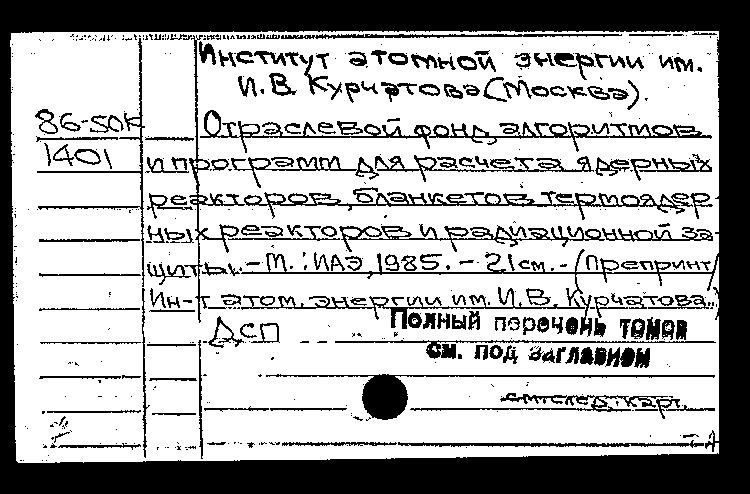 Институт атомной энергии им.
И.В. Курчатова (Москва).
86-50К
Отраслевой фонд алгоритмов
1401
и программ для расчета ядерных
реакторов, бланкетов термоядер-
ных реакторов и радиационной за-
щиты. - М.: ИАЭ, 1985. - 21см. - (Препринт/
Ин-т атом. энергии им. И.В. Курчатова..)
ДСП
Полный перечень томов
см. под заглавием
см. след. карт.